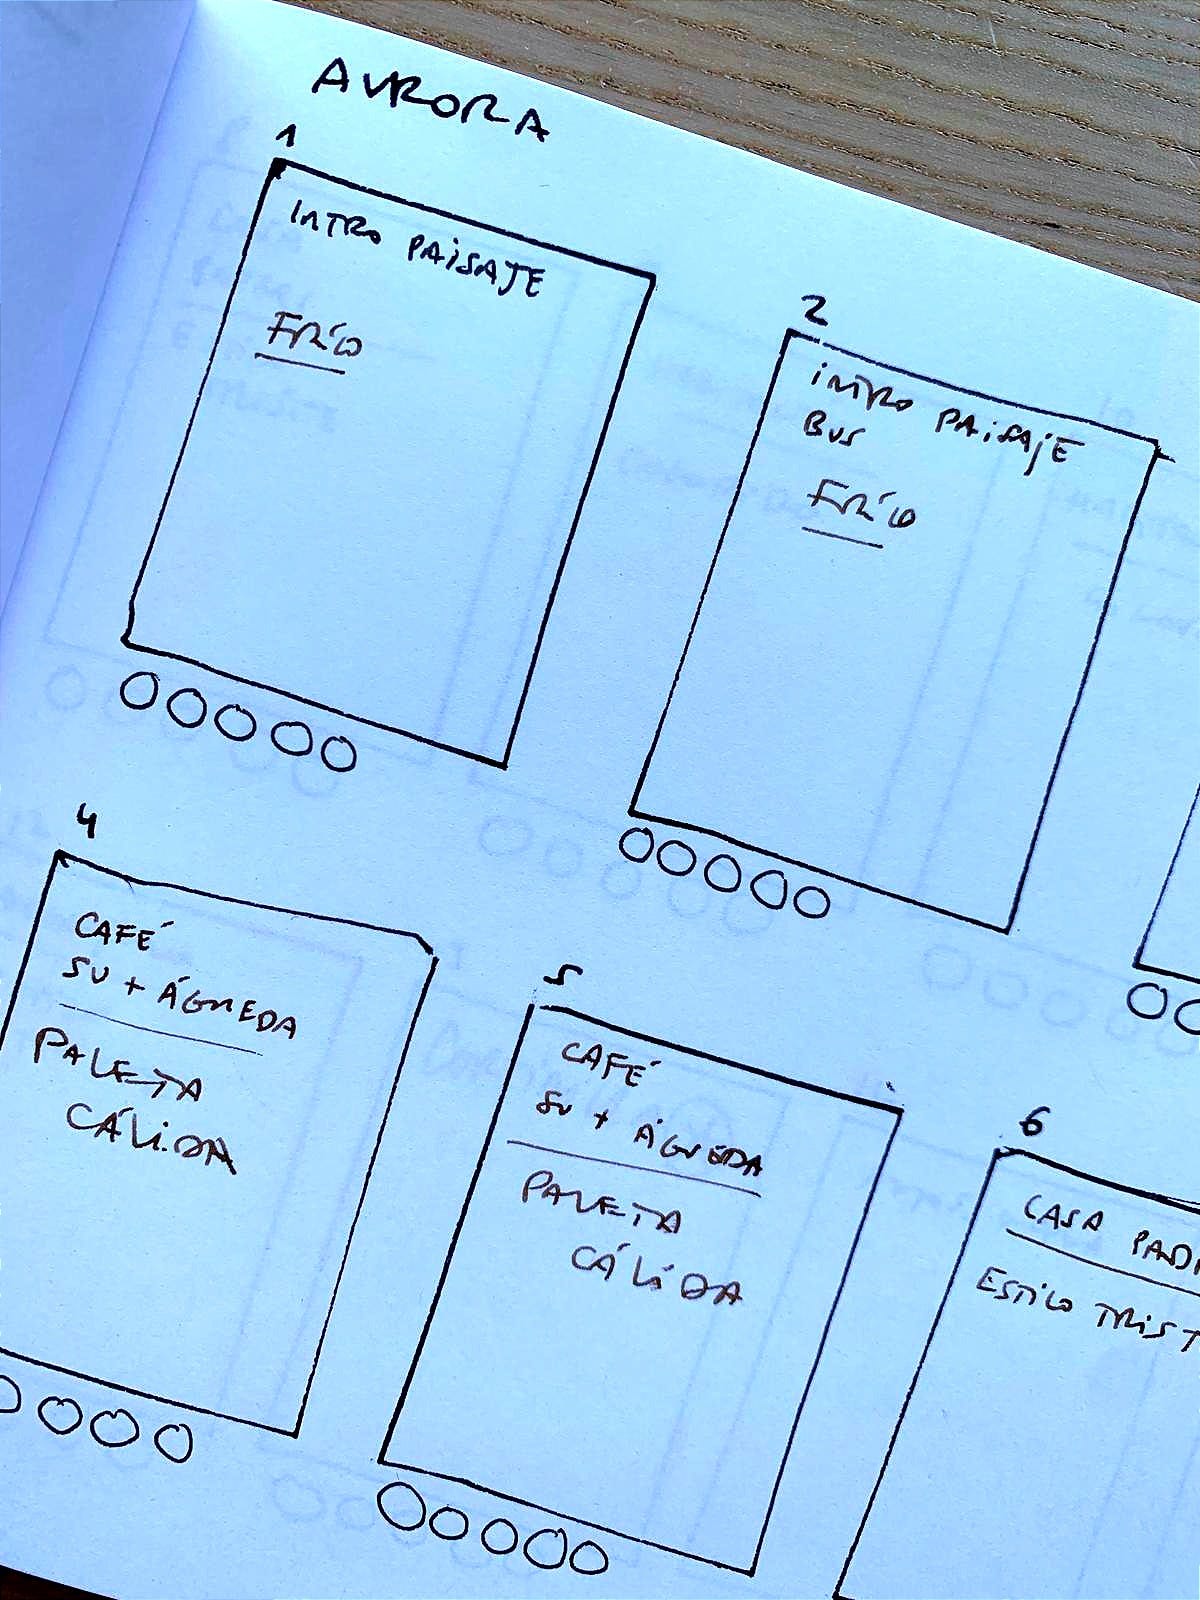 AURORA
1
INTRO PAISAJE
FRÍO
2
INTRO PAISAJE
BUS
FRÍO
4
CAFÉ
SU + ÁGUEDA
PALETA
CÁLIDA
5
CAFÉ
SU + ÁGUEDA
PALETA
CÁLIDA
6
CASA PADR
ESTILO TRIST